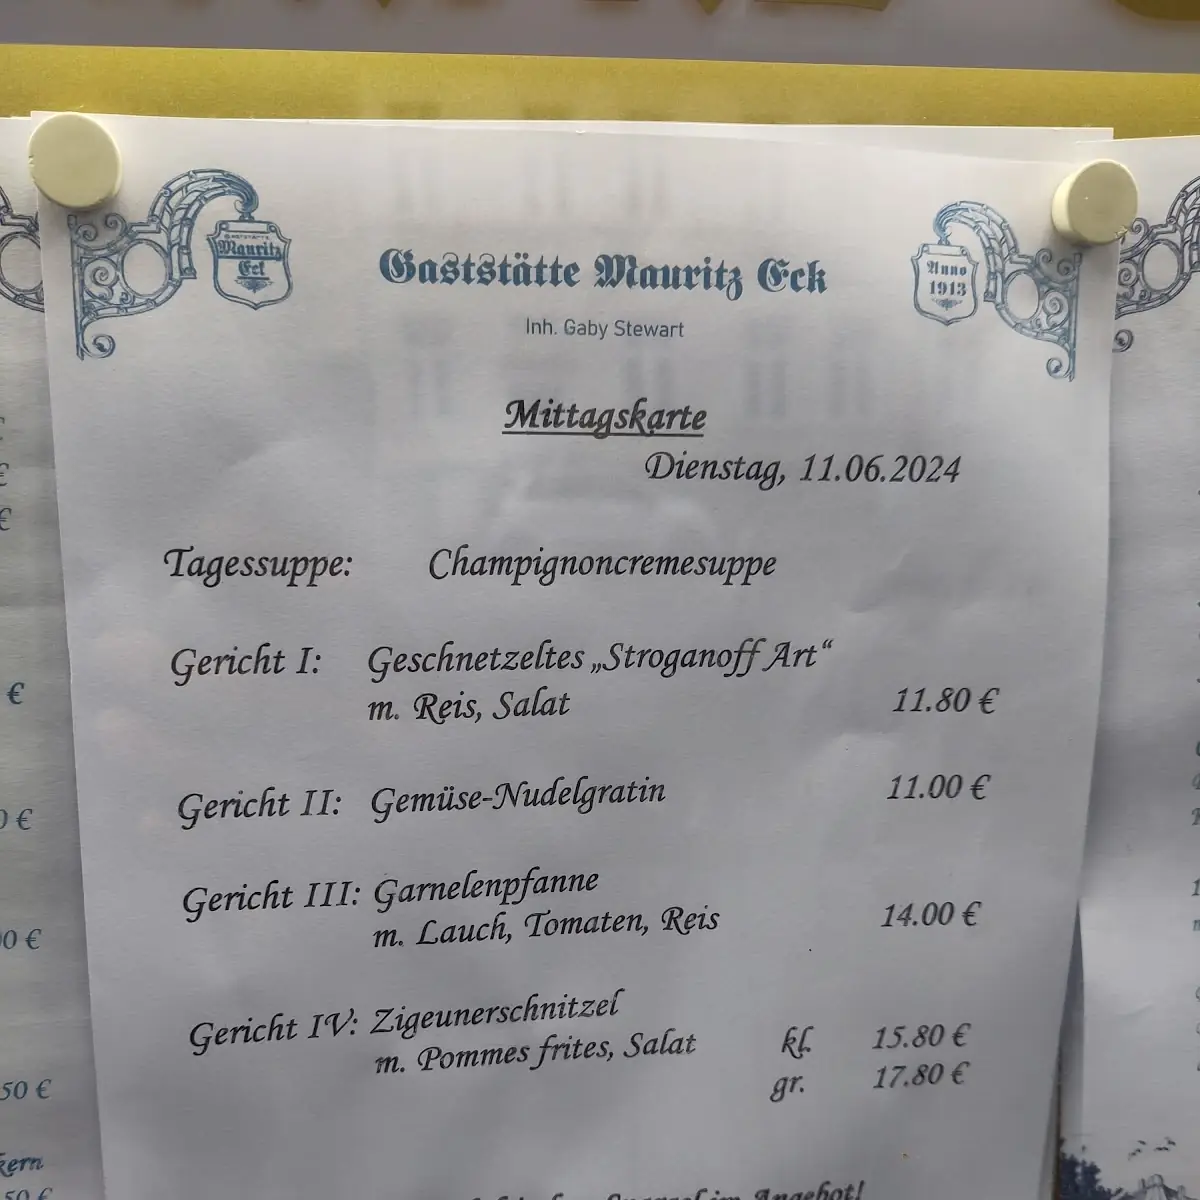 Mauritz
Eck
Gaststätte Mauritz Eck
Anno
1913
Inh. Gaby Stewart
Mittagskarte
Dienstag, 11.06.2024
Tagessuppe: Champignoncremesuppe
Gericht I: Geschnetzeltes „Stroganoff Art“
m. Reis, Salat 11.80 €
Gericht II: Gemüse-Nudelgratin 11.00 €
Gericht III: Garnelenpfanne
m. Lauch, Tomaten, Reis 14.00 €
Gericht IV: Zigeunerschnitzel
m. Pommes frites, Salat kl. 15.80 €
gr. 17.80 €
im Angebot!
€
€
€
€
0 €
00 €
50 €
kern
50 €